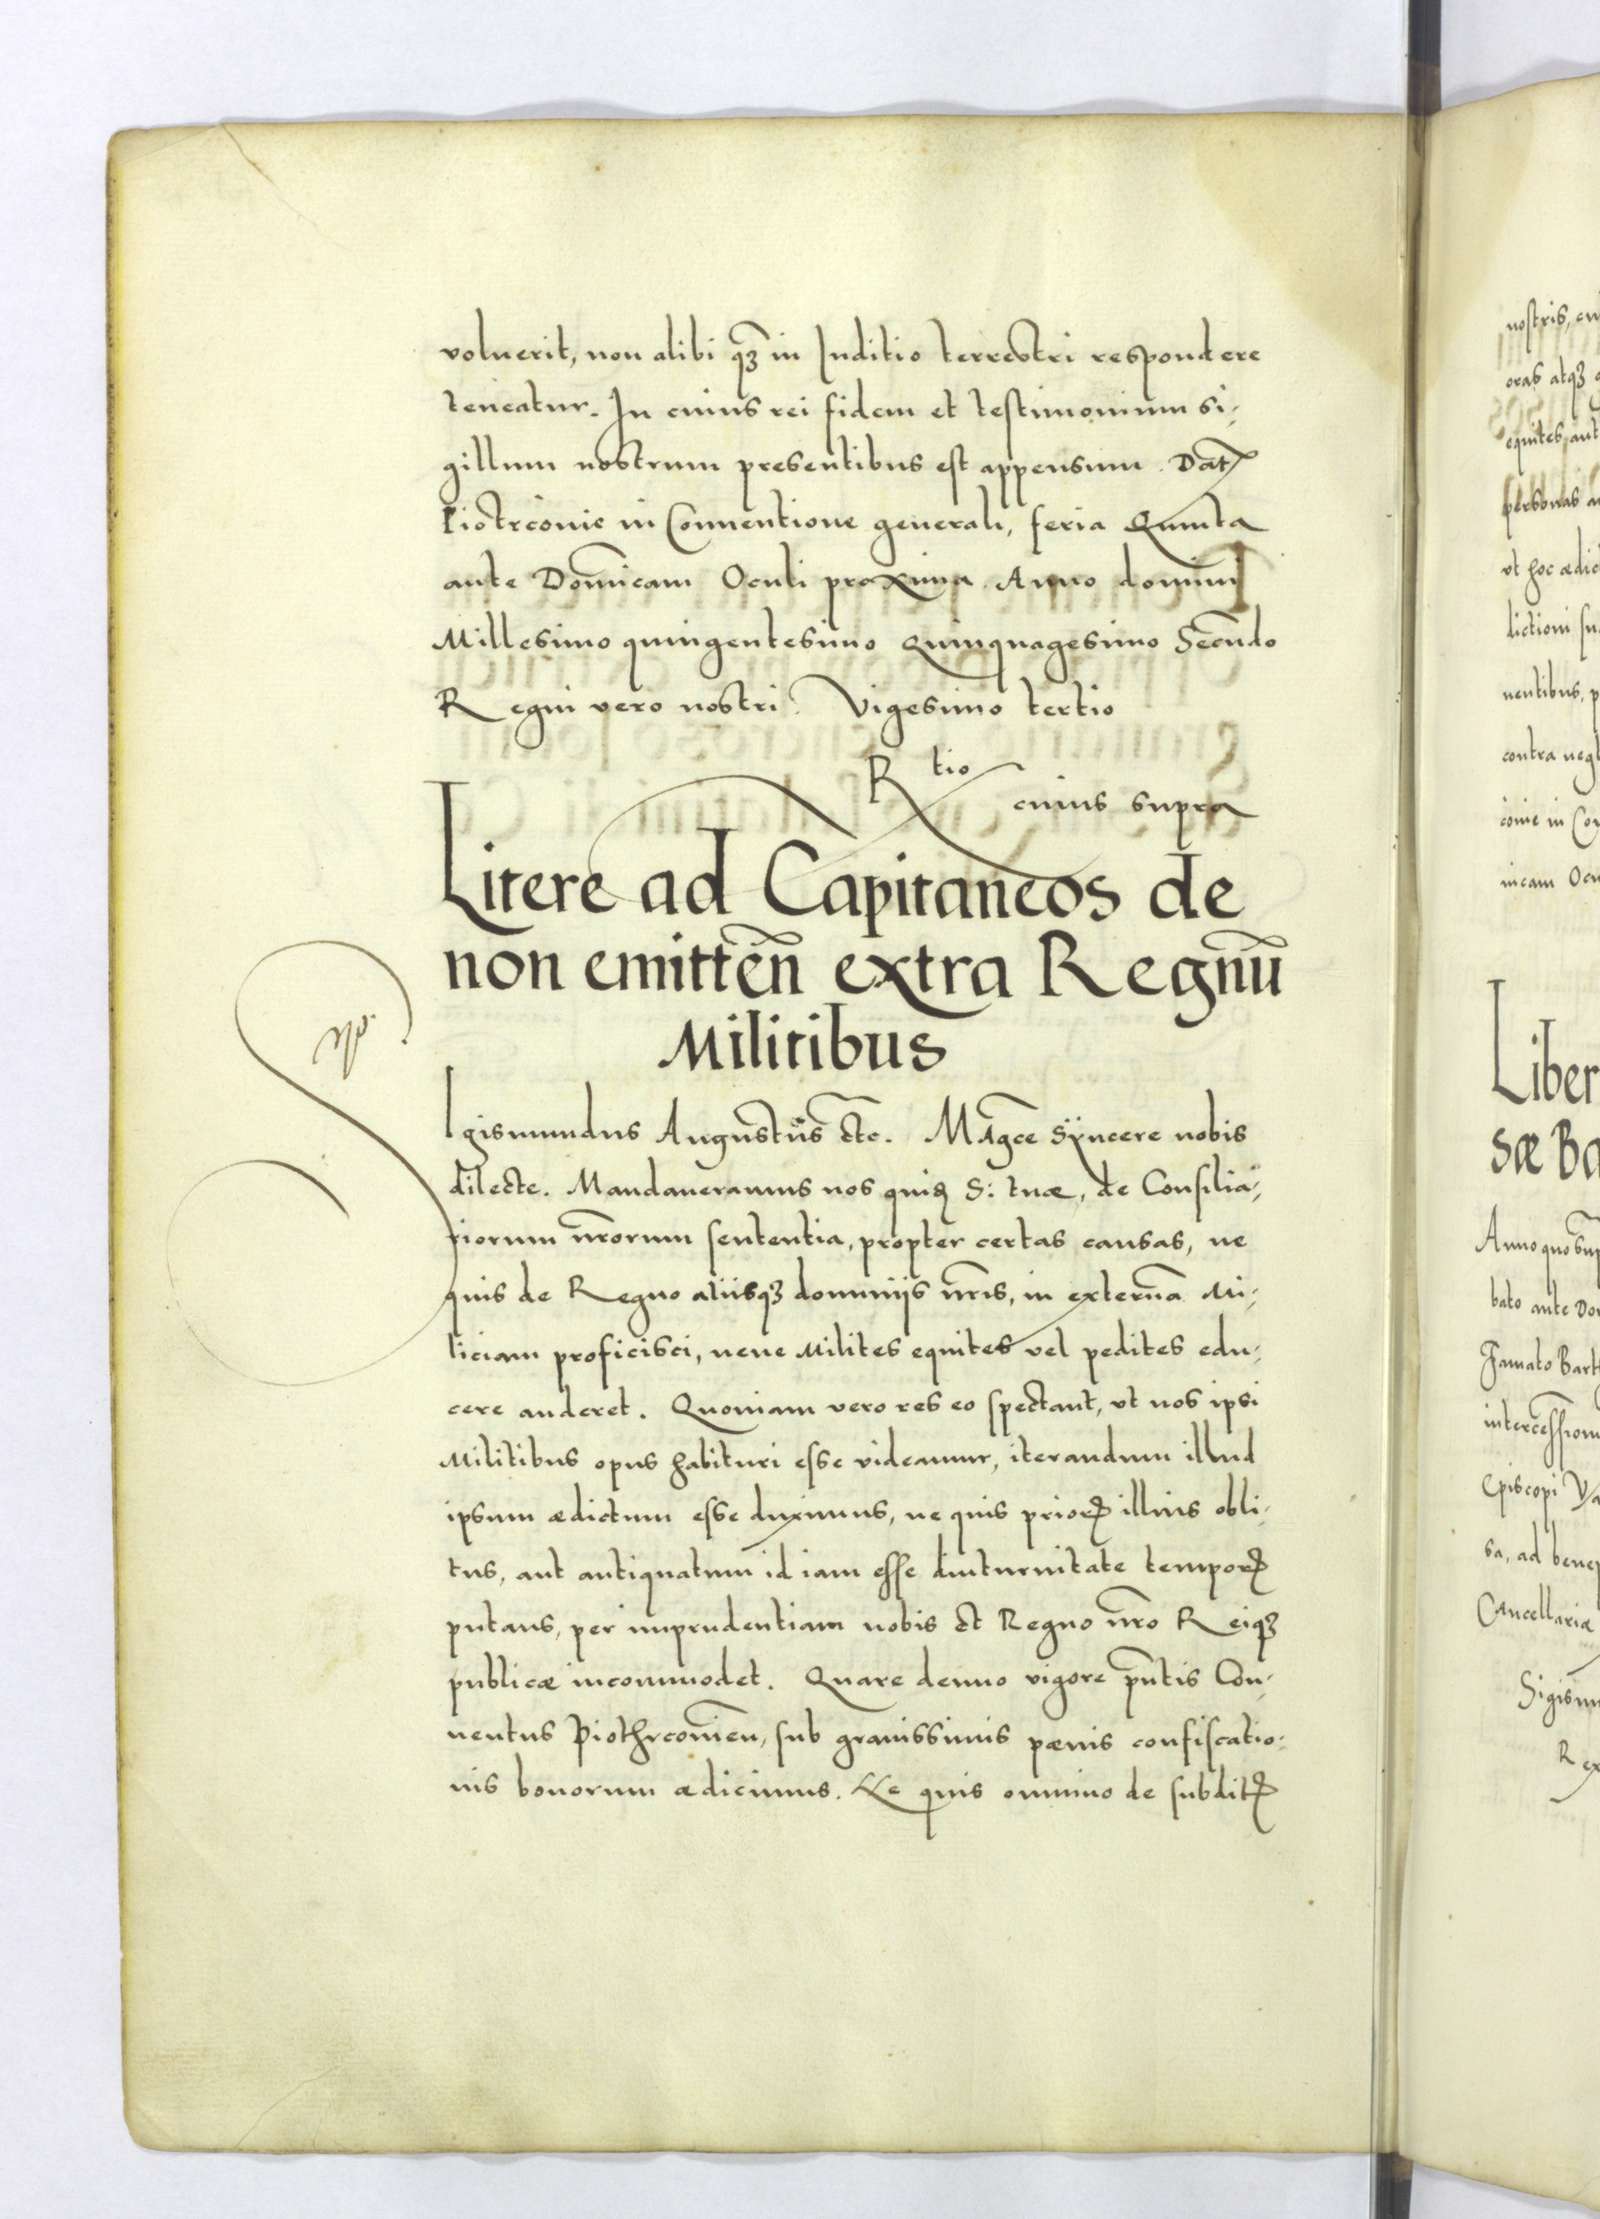 voluerit, non alibi qꝫ in Iuditio terrestri respondere
teneatur. In cuius rei fidem et testimonium si-
gillum nostrum presentibus est appensum. Dat
Piotrconie in Conuentione generali, feria Quinta
ante Domicam Oculi proxima. Anno domini
Millesimo quingentesimo Quinquagesimo Secundo
Regni vero nostri Vigesimo tertio
Rtio cuius supra
Litere ad Capitaneos de
non emitten̄ extra Regnū
Militibus
Sigismundus Augustus etc. Magce Syncere nobis
dilecte. Mandaueramus nos quiꝫ S: tuæ, de Consilia-
riorum nrorum sententia, propter certas causas, ne
quis de Regno aliisqꝫ dominijs nris, in externā Mi-
liciam proficisci, neue Milites equites vel pedites edu-
cere auderet. Quoniam vero res eo spectant, vt nos ipsi
Militibus opus habituri esse videamur, iterandum illud
ipsum ædictum esse duximus, ne quis prioris illius obli-
tus, aut antiquatum id iam esse diuturnitate temporis
putans, per imprudentiam nobis et Regno nro Reiqꝫ
publicæ incommodet. Quare denuo vigore pntis Con-
uentus Piothrconien, sub grauissimis pœnis confiscatio-
nis bonorum ædicimus. Ne quis omnino de subditis
nostris,
oras atqꝫ
equites aut
personas
vt hoc ædic
dictioni su
uentibus, p
contra negl
conie in Con
nicam Ocu
Liber
sæ Ba
Anno quo sup
bato ante Do
Famato Bart
intercession
Episcopi
sa, ad benep
Cancellariæ
Sigism
Rex